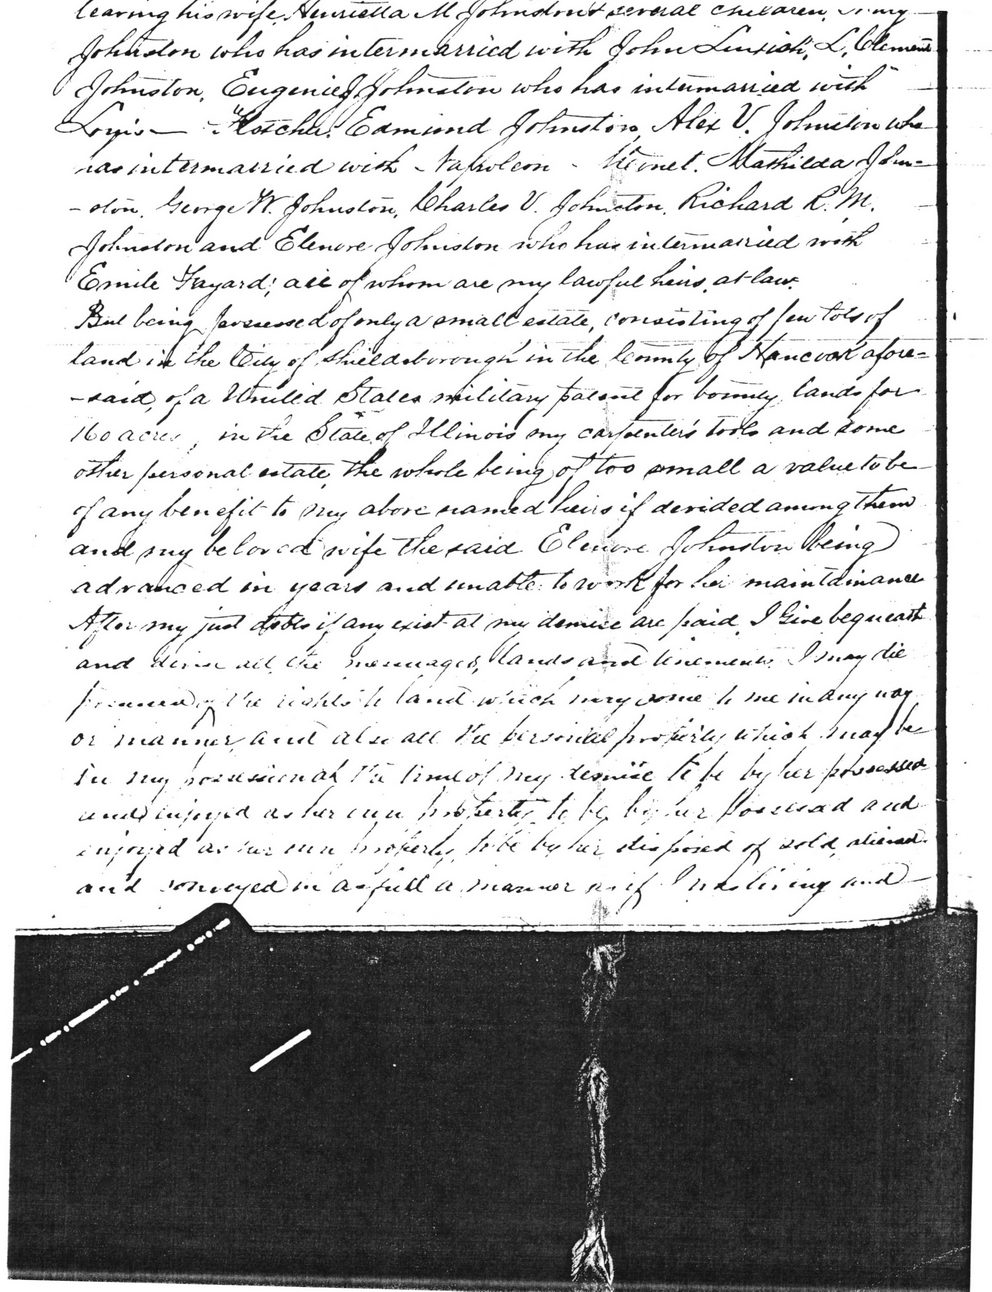 leaving his wife Henrietta M Johnston & several children, Mary
Johnston who has intermarried with John L. Clement
Johnston, Eugenie J Johnston who has intermarried with
Louis Edmund Johnston, Alex V. Johnston who
has intermarried with Napoleon Mathilda John-
-ston, George W. Johnston, Charles V. Johnston, Richard R. M.
Johnston and Elenore Johnston who has intermarried with
Emile Fayard; all of whom are my lawful heirs, at law.
But being possessed of only a small estate, consisting of few lots of
land in the City of Shieldsborough in the County of Hancock afore=
-said, of a United States military patent for bounty lands for
160 acres, in the State of Illinois my carpenter's tools and some
other personal estate, the whole being of too small a value to be
of any benefit to my above named heirs if devided among them
and my beloved wife the said Elenore Johnston being
advanced in years and unable to work for her maintainance
After my just debts if any exist at my demise are paid, I Give bequeath
and devise all the messuages, lands and tenements I may die
possessed of the rights to land which may come to me in any way
or manner, and also all the personal property which may be
in my possession at the time of my demise to be by her possessed
and enjoyed as her own property, to be by her possessed and
enjoyed as her own property, to be by her disposed of sold, aliened
and conveyed in as full a manner as if I was living and